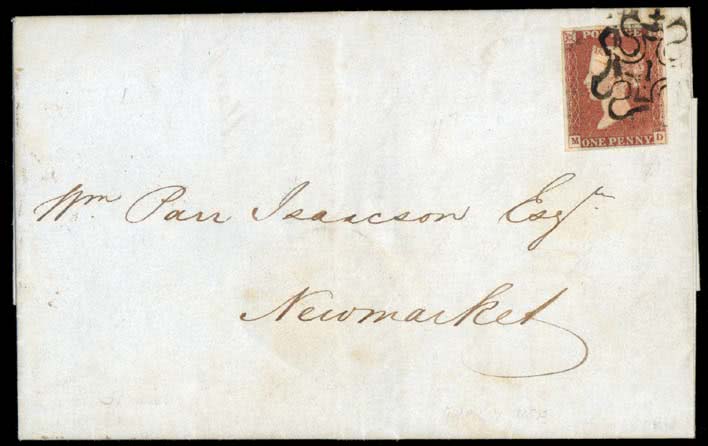 POSTAGE
M ONE PENNY D
Wm Parr Isaacson Esqr
Newmarket